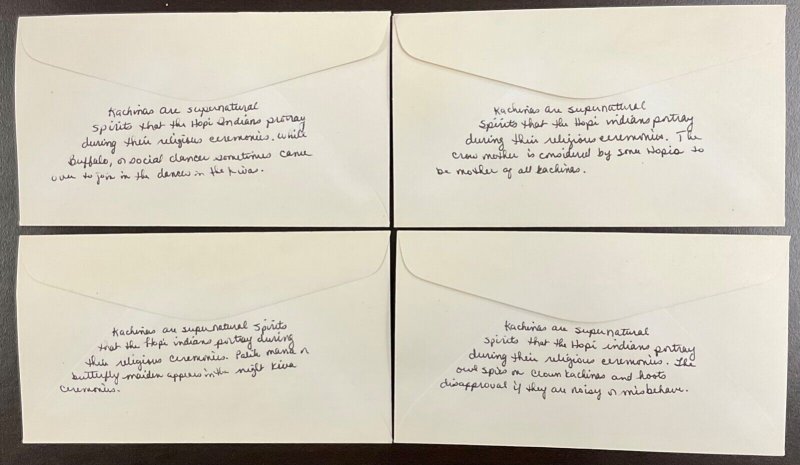 Kachinas are supernatural
spirits that the Hopi Indians protray
during their religious ceremonies. While
Buffalo, or social dancer sometimes came
over to join in the dances in the Kivas.
Kachinas are supernatural
spirits that the Hopi indians portray
during their religious ceremonies. The
crow mother is considered by some Hopis to
be mother of all kachinas.
Kachinas are supernatural spirits
that the Hopi indians portray during
their religious ceremonies. Palik mana or
butterfly maiden appears in the night Kiva
ceremonies.
Kachinas are supernatural
spirits that the Hopi indians portray
during their religious ceremonies. The
owl spies on clown kachinas and hoots
disapproval if they are noisy or misbehave.